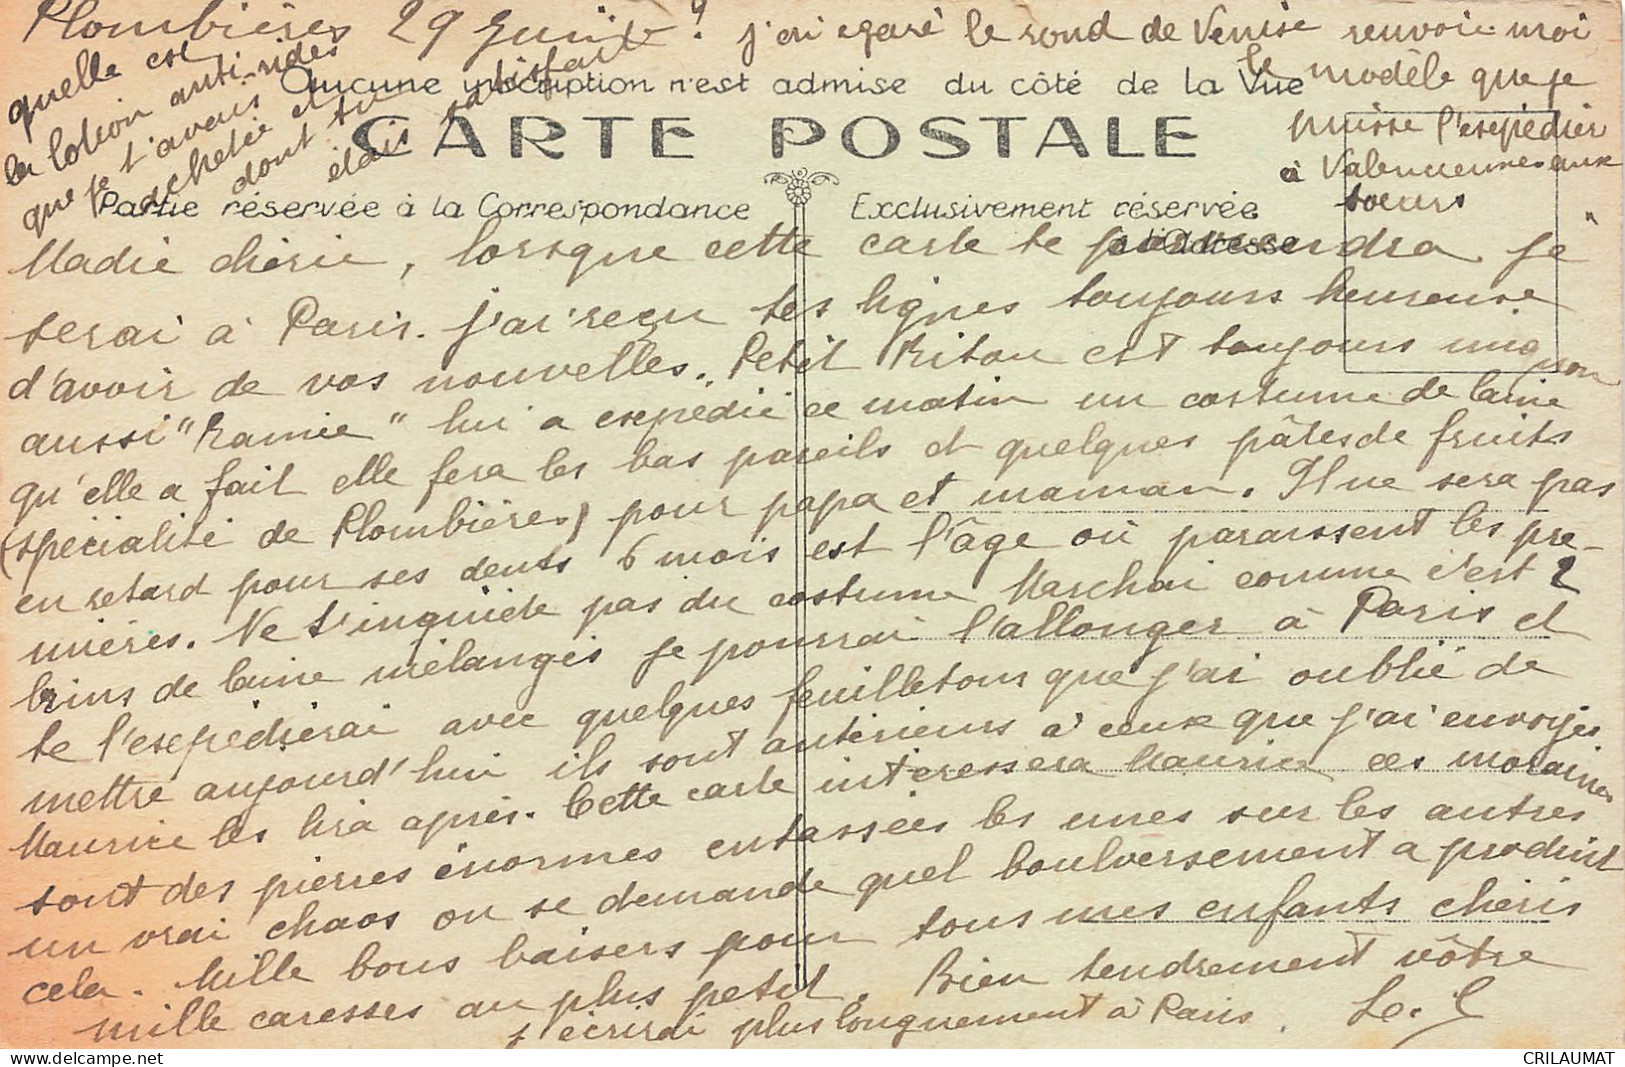 Plombières 29 Juin
j'ai egaré le rond de Venise renvoie-moi
le modèle que je
puisse l'expédier
à Valenciennes aux
soeurs
quelle est
la lotion anti-rides
que je t'avais
achetée et
dont tu
étais satisfaite ?
Aucune inscription n'est admise du côté de la Vue
CARTE POSTALE
Partie réservée à la Correspondance
Exclusivement réservée
à l'Adresse
Madie chérie, lorsque cette carte te parviendra je
serai à Paris. j'ai reçu tes lignes toujours heureuse
d'avoir de vos nouvelles. Petit Kiton est toujours mignon
aussi "Ramie" lui a expédié ce matin un costume de laine
qu'elle a fait elle fera les bas pareils et quelques pâtes de fruits
(spécialité de Plombières) pour papa et maman. Il ne sera pas
en retard pour ses dents 6 mois est l'âge où paraissent les pre-
mières. Ne t'inquiète pas du costume Marchai comme c'est 2
brins de laine mélangés je pourrai l'allonger à Paris et
te l'expédierai avec quelques feuilletons que j'ai oublié de
mettre aujourd'hui ils sont antérieurs à ceux que j'ai envoyés
Maurice les lira après. Cette carte intéressera Maurice ces moraines
sont des pierres énormes entassées les unes sur les autres
un vrai chaos on se demande quel boulversement a produit
cela. Mille bons baisers pour tous mes enfants chéris
mille caresses au plus petit. Bien tendrement vôtre
j'écrirai plus longuement à Paris. Le. L
CRILAUMAT